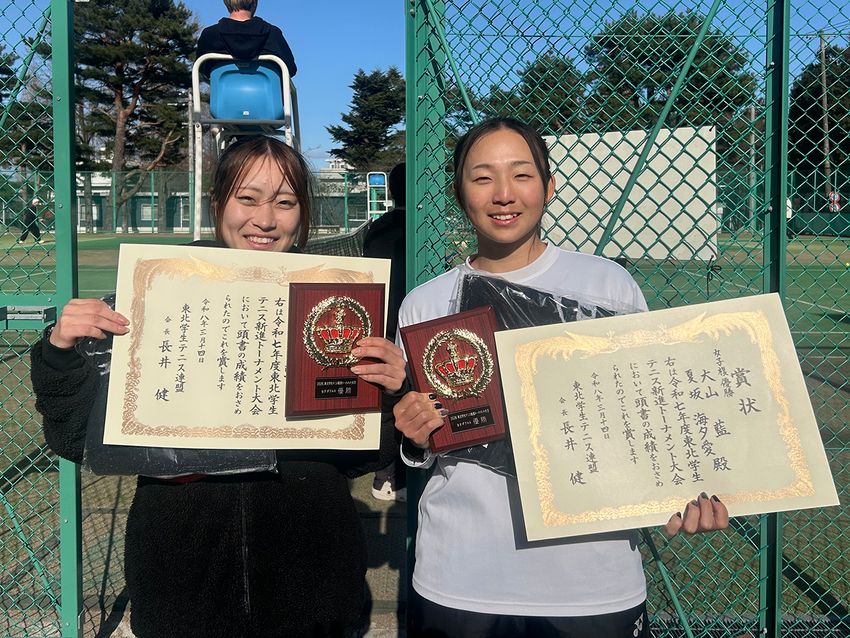 右は令和七年度東北学生
テニス新進トーナメント大会
において頭書の成績をおさめ
られたのでこれを賞します
令和八年三月十四日
東北学生テニス連盟
会長 長井 健
優勝
賞状
女子複優勝
大山 藍
夏坂 海夕愛 殿
右は令和七年度東北学生
テニス新進トーナメント大会
において頭書の成績をおさめ
られたのでこれを賞します
令和八年三月十四日
東北学生テニス連盟
会長 長井 健
優勝
YONEX